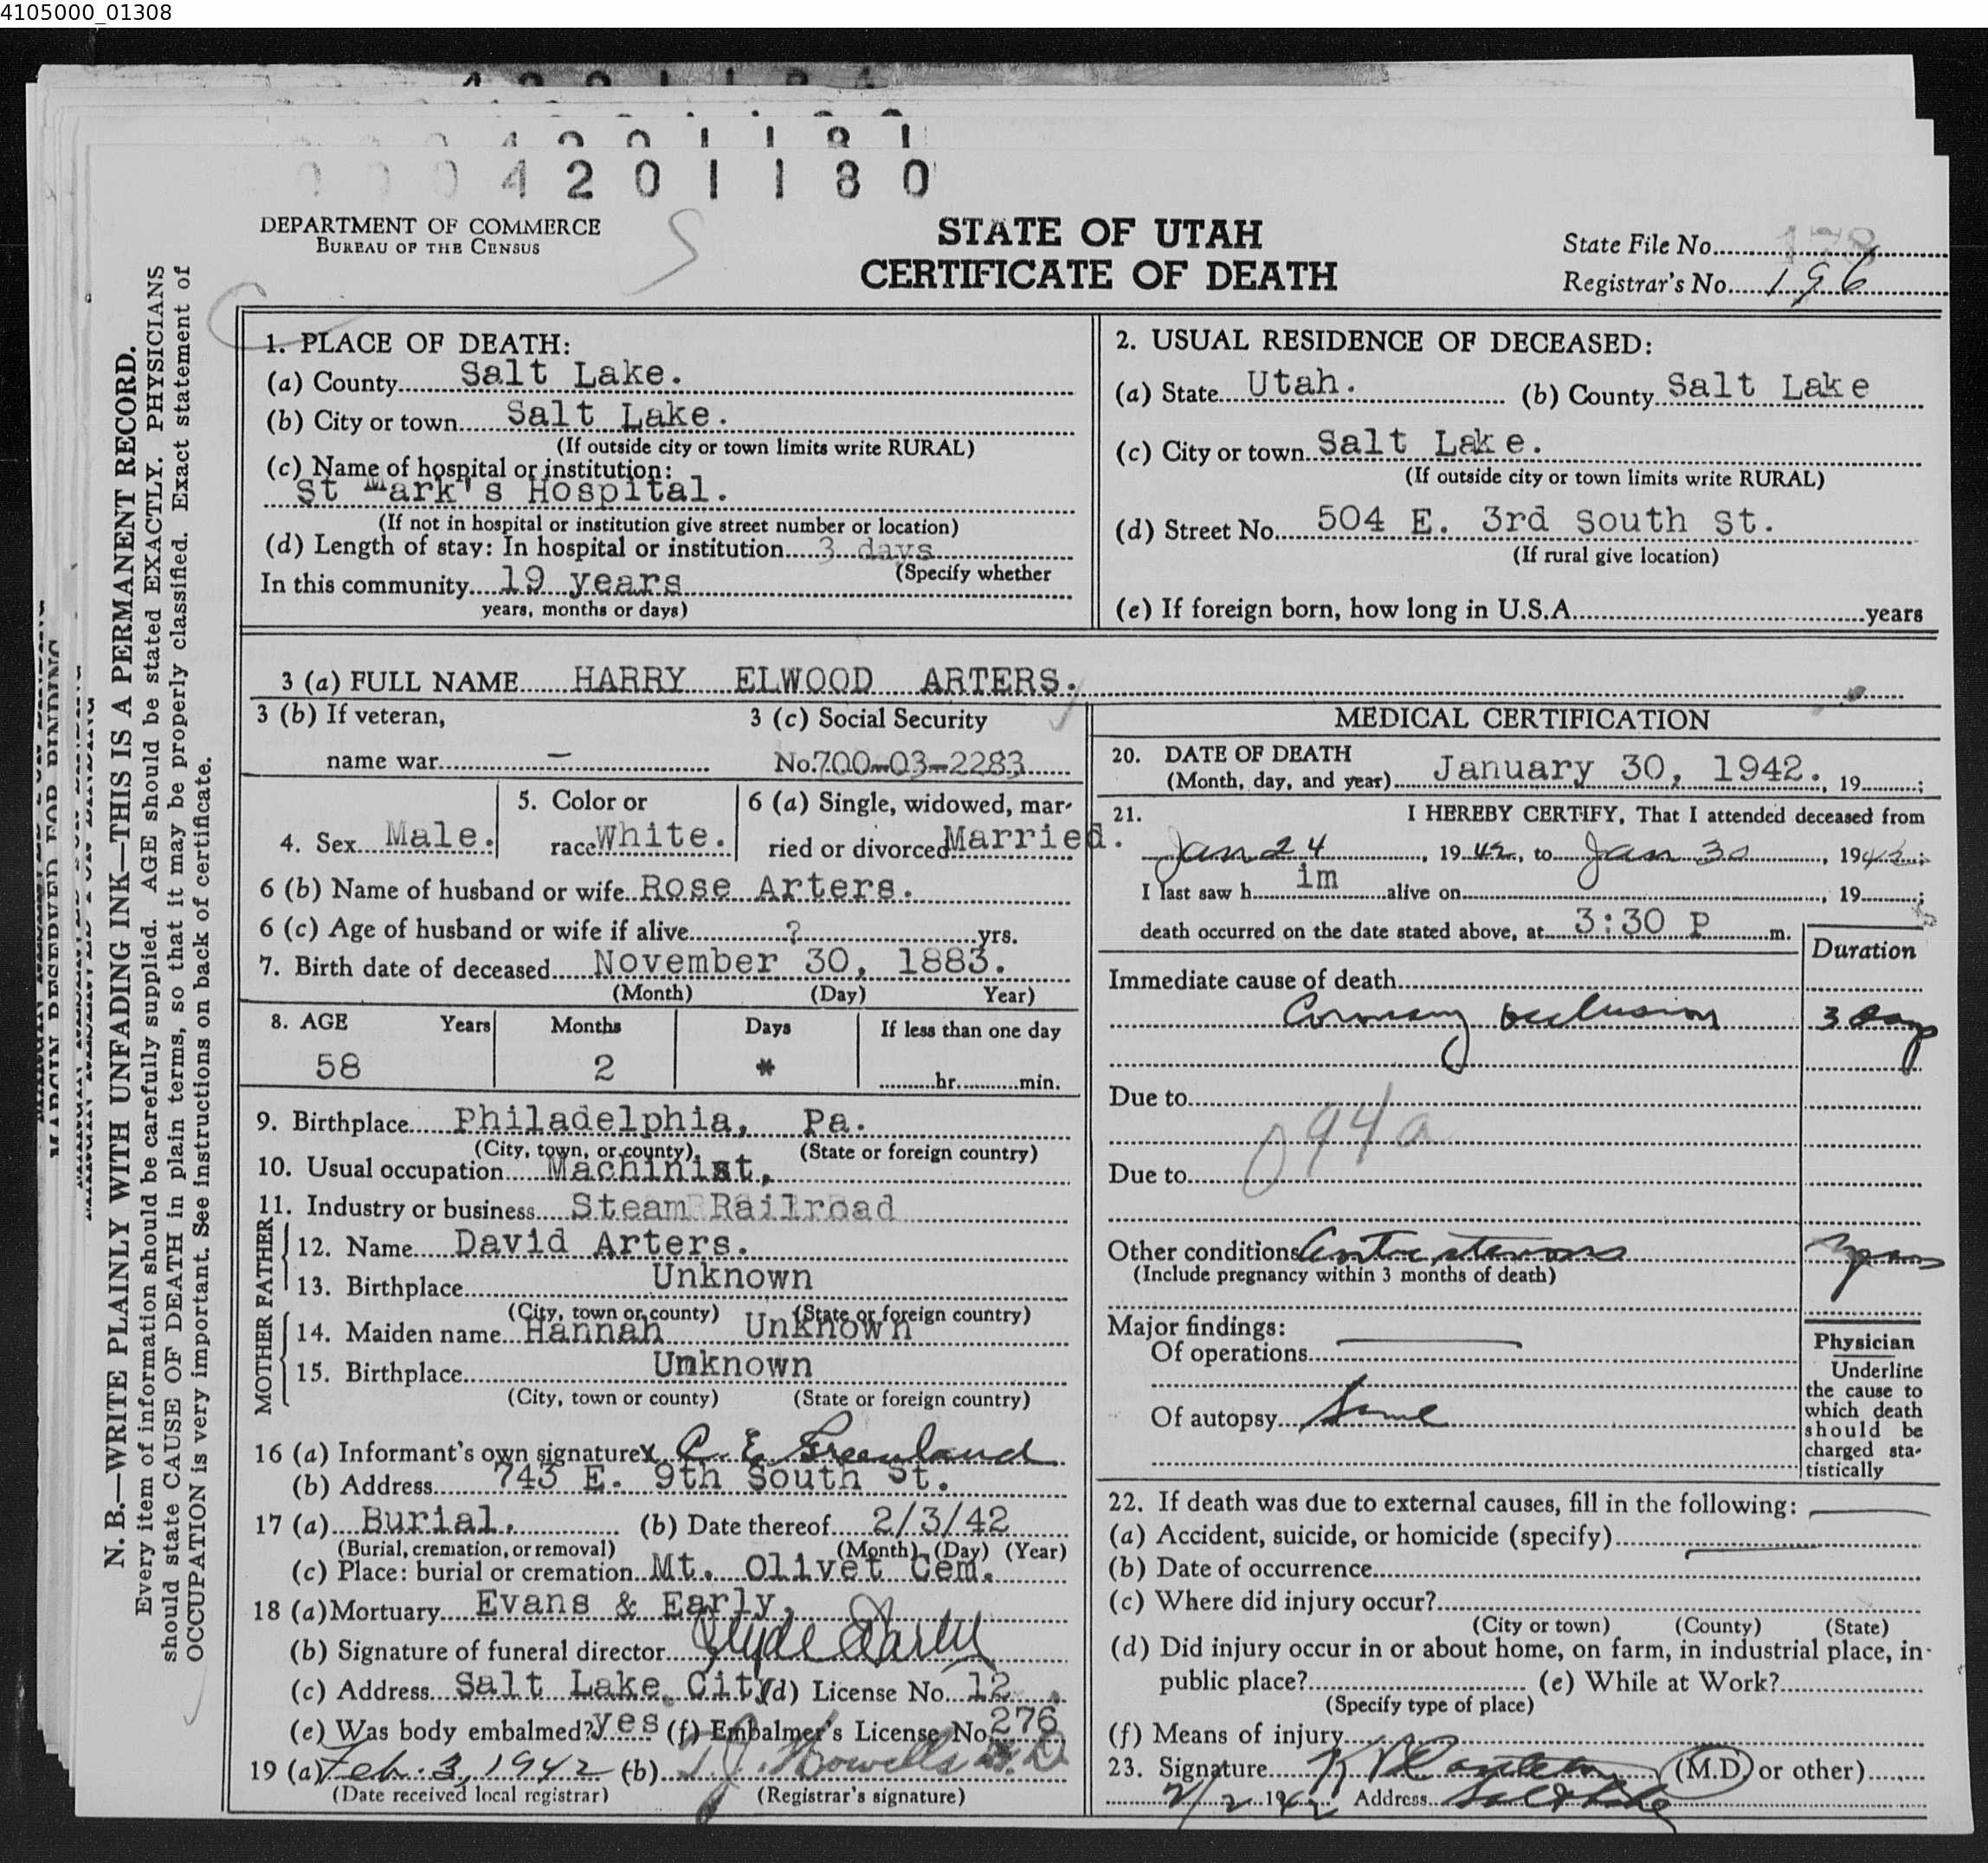 4105000_01308
0004201180
DEPARTMENT OF COMMERCE
BUREAU OF THE CENSUS
S
STATE OF UTAH
CERTIFICATE OF DEATH
State File No. 178
Registrar's No. 196
N. B.—WRITE PLAINLY WITH UNFADING INK—THIS IS A PERMANENT RECORD.
Every item of information should be carefully supplied. AGE should be stated EXACTLY. PHYSICIANS
should state CAUSE OF DEATH in plain terms, so that it may be properly classified. Exact statement of
OCCUPATION is very important. See instructions on back of certificate.
1. PLACE OF DEATH:
(a) County Salt Lake.
(b) City or town Salt Lake.
(If outside city or town limits write RURAL)
(c) Name of hospital or institution:
St Mark's Hospital.
(If not in hospital or institution give street number or location)
(d) Length of stay: In hospital or institution 3 days
(Specify whether
In this community 19 years
years, months or days)
2. USUAL RESIDENCE OF DECEASED:
(a) State Utah. (b) County Salt Lake
(c) City or town Salt Lake.
(If outside city or town limits write RURAL)
(d) Street No. 504 E. 3rd South St.
(If rural give location)
(e) If foreign born, how long in U.S.A. years
3 (a) FULL NAME HARRY ELWOOD ARTERS.
3 (b) If veteran, 3 (c) Social Security
name war — No. 700-03-2283
4. Sex Male. 5. Color or race White. 6 (a) Single, widowed, married or divorced Married.
6 (b) Name of husband or wife Rose Arters.
6 (c) Age of husband or wife if alive ? yrs.
7. Birth date of deceased November 30, 1883.
(Month) (Day) Year)
8. AGE Years Months Days If less than one day
58 2 * hr. min.
9. Birthplace Philadelphia, Pa.
(City, town, or county) (State or foreign country)
10. Usual occupation Machinist,
11. Industry or business Steam Railroad
FATHER
12. Name David Arters.
13. Birthplace Unknown
(City, town or county) (State or foreign country)
MOTHER
14. Maiden name Hannah Unknown
15. Birthplace Unknown
(City, town or county) (State or foreign country)
16 (a) Informant's own signature X C. E. Greenland
(b) Address 743 E. 9th South St.
17 (a) Burial. (b) Date thereof 2/3/42
(Burial, cremation, or removal) (Month) (Day) (Year)
(c) Place: burial or cremation Mt. Olivet Cem.
18 (a) Mortuary Evans & Early,
(b) Signature of funeral director Clyde Early
(c) Address Salt Lake City (d) License No. 12
(e) Was body embalmed? yes (f) Embalmer's License No. 276
19 (a) Feb. 3, 1942 (b) T. J. Howells M. D.
(Date received local registrar) (Registrar's signature)
MEDICAL CERTIFICATION
20. DATE OF DEATH
(Month, day, and year) January 30, 1942. , 19 ;
21. I HEREBY CERTIFY, That I attended deceased from
Jan 24 , 19 42, to Jan 30 , 1942 ;
I last saw h im alive on , 19 ;
death occurred on the date stated above, at 3:30 P m.
Duration
Immediate cause of death
Coronary occlusion 3 days
Due to
094a
Due to
Other conditions
(Include pregnancy within 3 months of death)
Major findings:
Of operations
Of autopsy Same
Physician
Underline
the cause to
which death
should be
charged sta-
tistically
22. If death was due to external causes, fill in the following:
(a) Accident, suicide, or homicide (specify)
(b) Date of occurrence
(c) Where did injury occur?
(City or town) (County) (State)
(d) Did injury occur in or about home, on farm, in industrial place, in
public place? (e) While at Work?
(Specify type of place)
(f) Means of injury
23. Signature (M.D. or other)
2/2 1942 Address Salt Lake